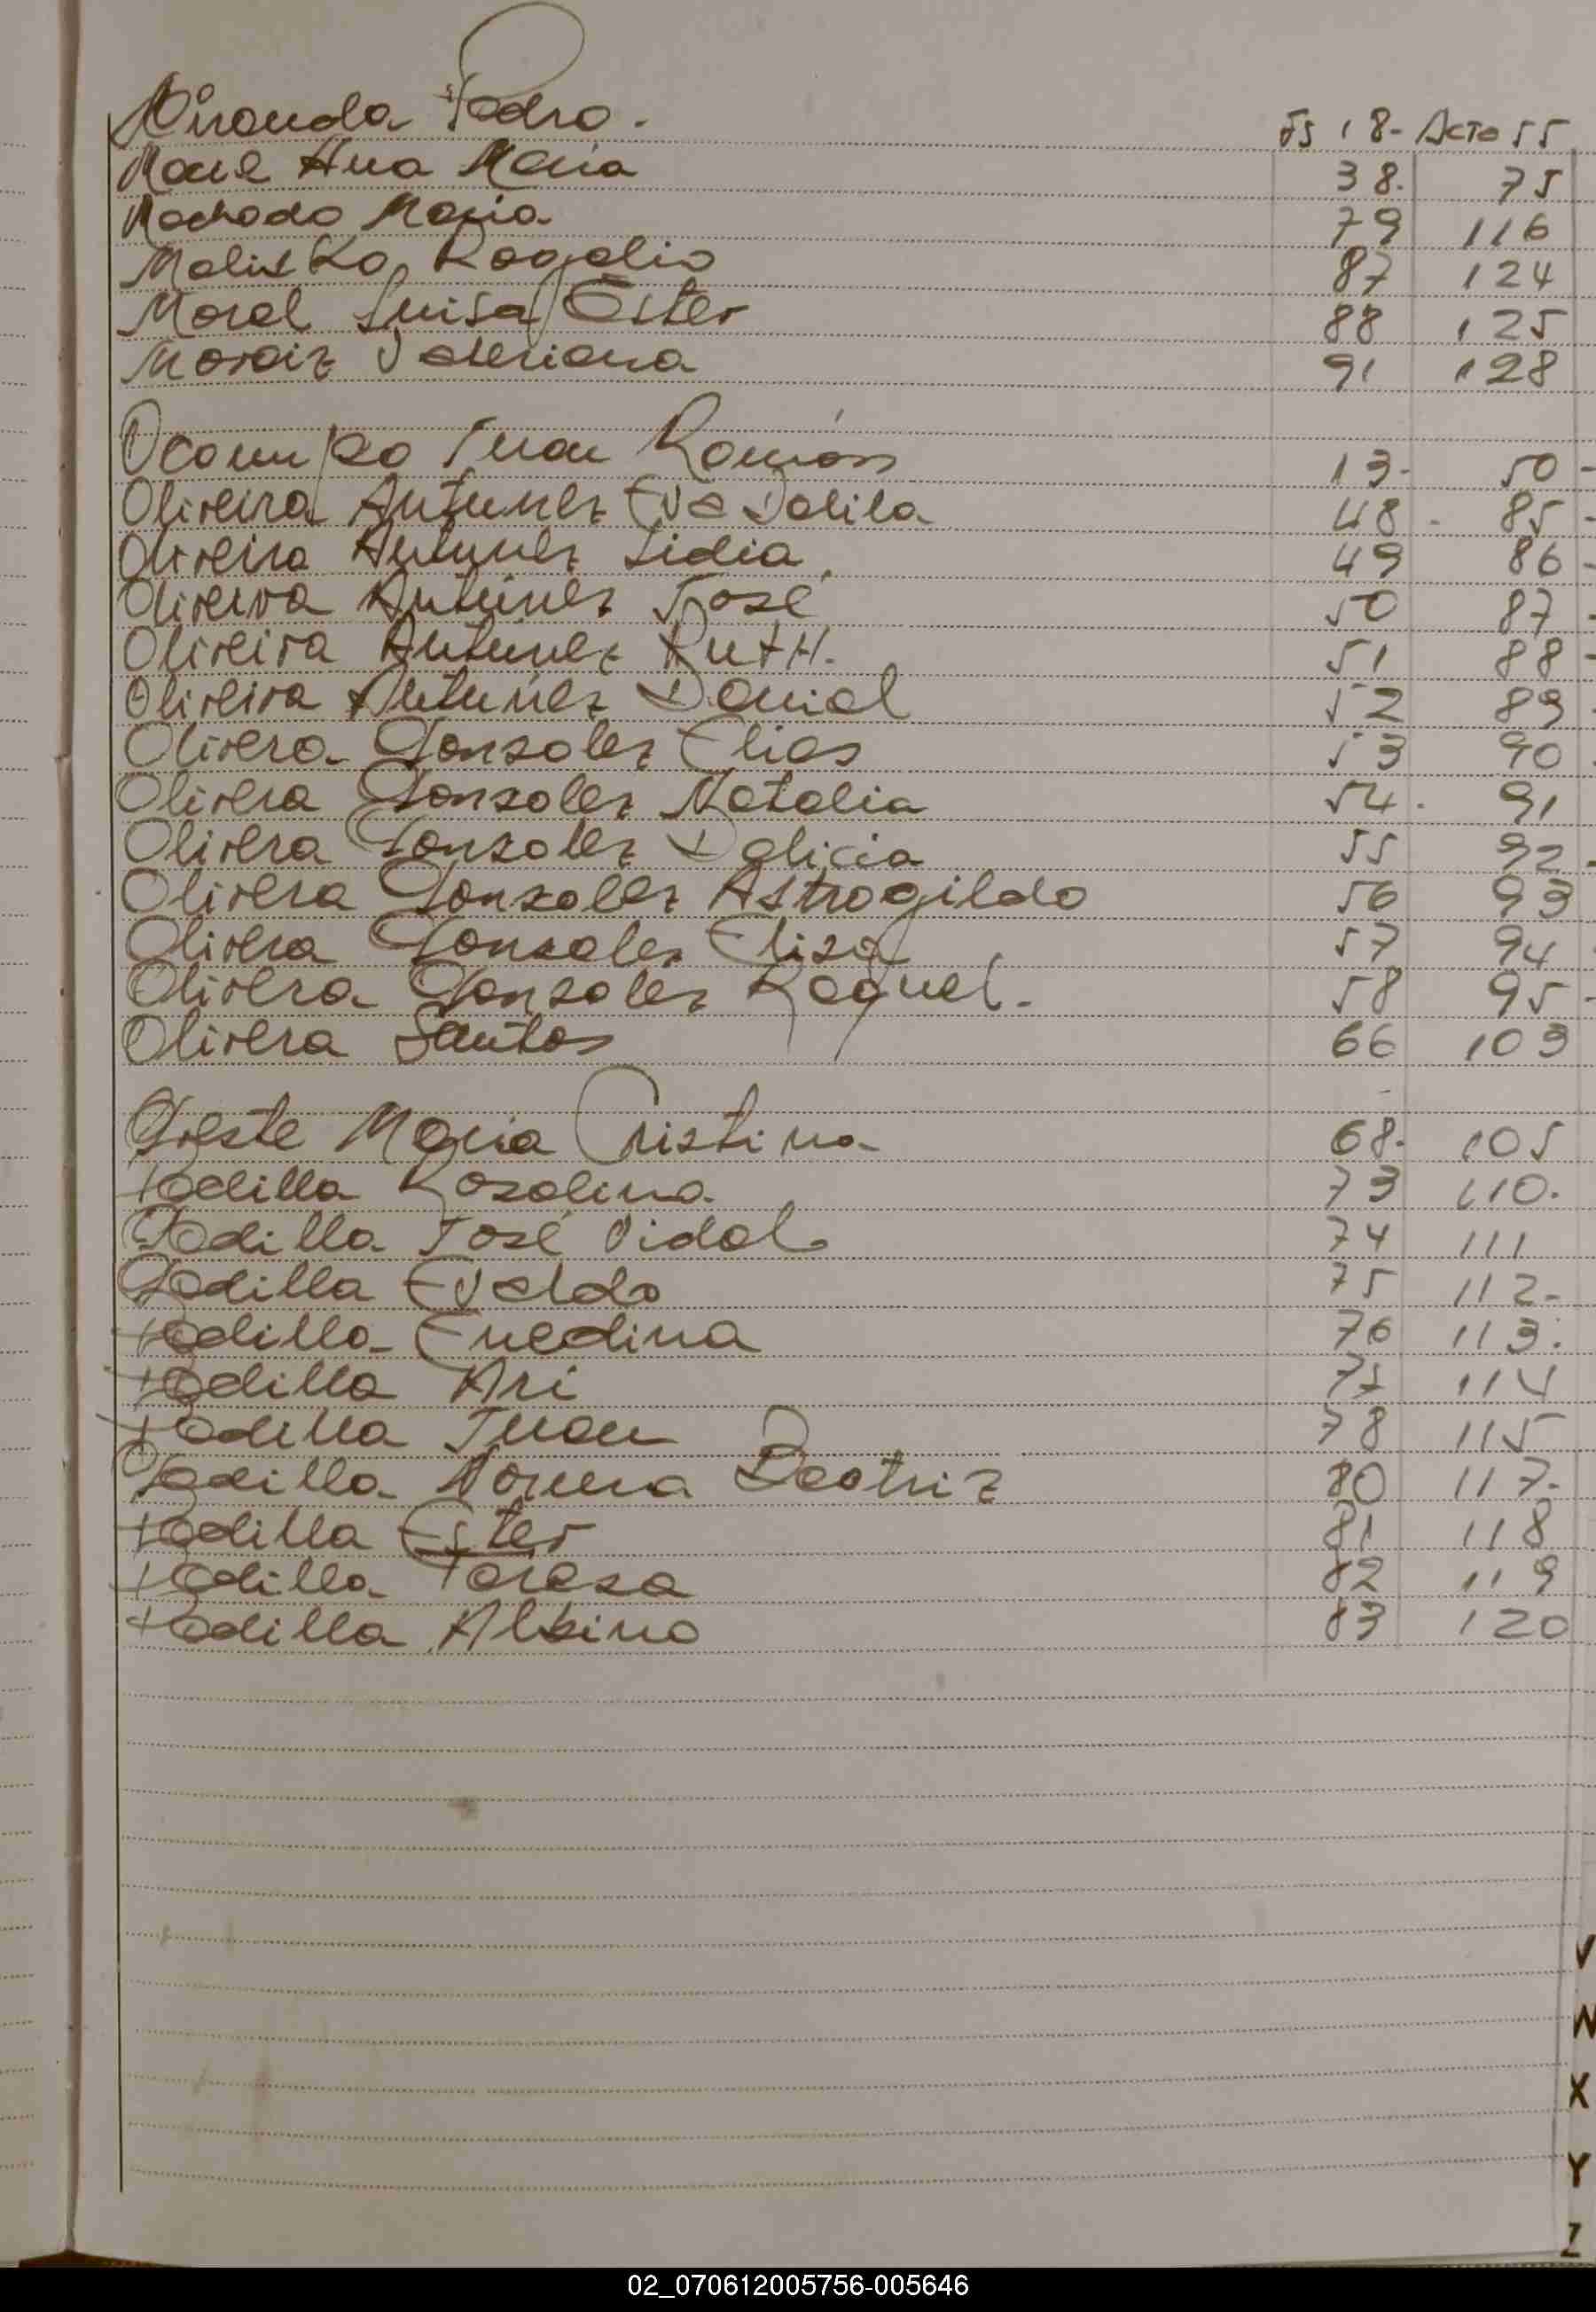 Miranda Pedro. Fs 18- Acta 55
Maul Ana Maria 38. 75
Machado Maria 79 116
Malisko Rogelio 87 124
Moral Luisa Ester 88 125
Moraiz Valeriana 91 128
Ocampo Juan Ramón 13- 50-
Oliveira Antunez Eva Dalila 48- 85-
Oliveira Antunez Lidia 49 86-
Oliveira Antunez José 50 87-
Oliveira Antunez Ruth. 51 88-
Oliveira Antunez Daniel 52 89-
Olivera Gonzalez Elias 53 90-
Olivera Gonzalez Natalia 54. 91
Olivera Gonzalez Dalicia 55 92-
Olivera Gonzalez Astrogildo 56 93
Olivera Gonzalez Elisa 57 94
Olivera Gonzalez Raquel. 58 95-
Olivera Santos 66 103
Preste Maria Cristina 68- 105
Padilla Rosalina 73 110.
Padilla José Vidal 74 111
Padilla Evaldo 75 112-
Padilla Enedina 76 113.
Padilla Ari 77 114
Padilla Juan 78 115
Padilla Norma Beatriz 80 117-
Padilla Ester 81 118
Padilla Teresa 82 119
Padilla Albino 83 120
V
W
X
Y
Z
02_070612005756-005646